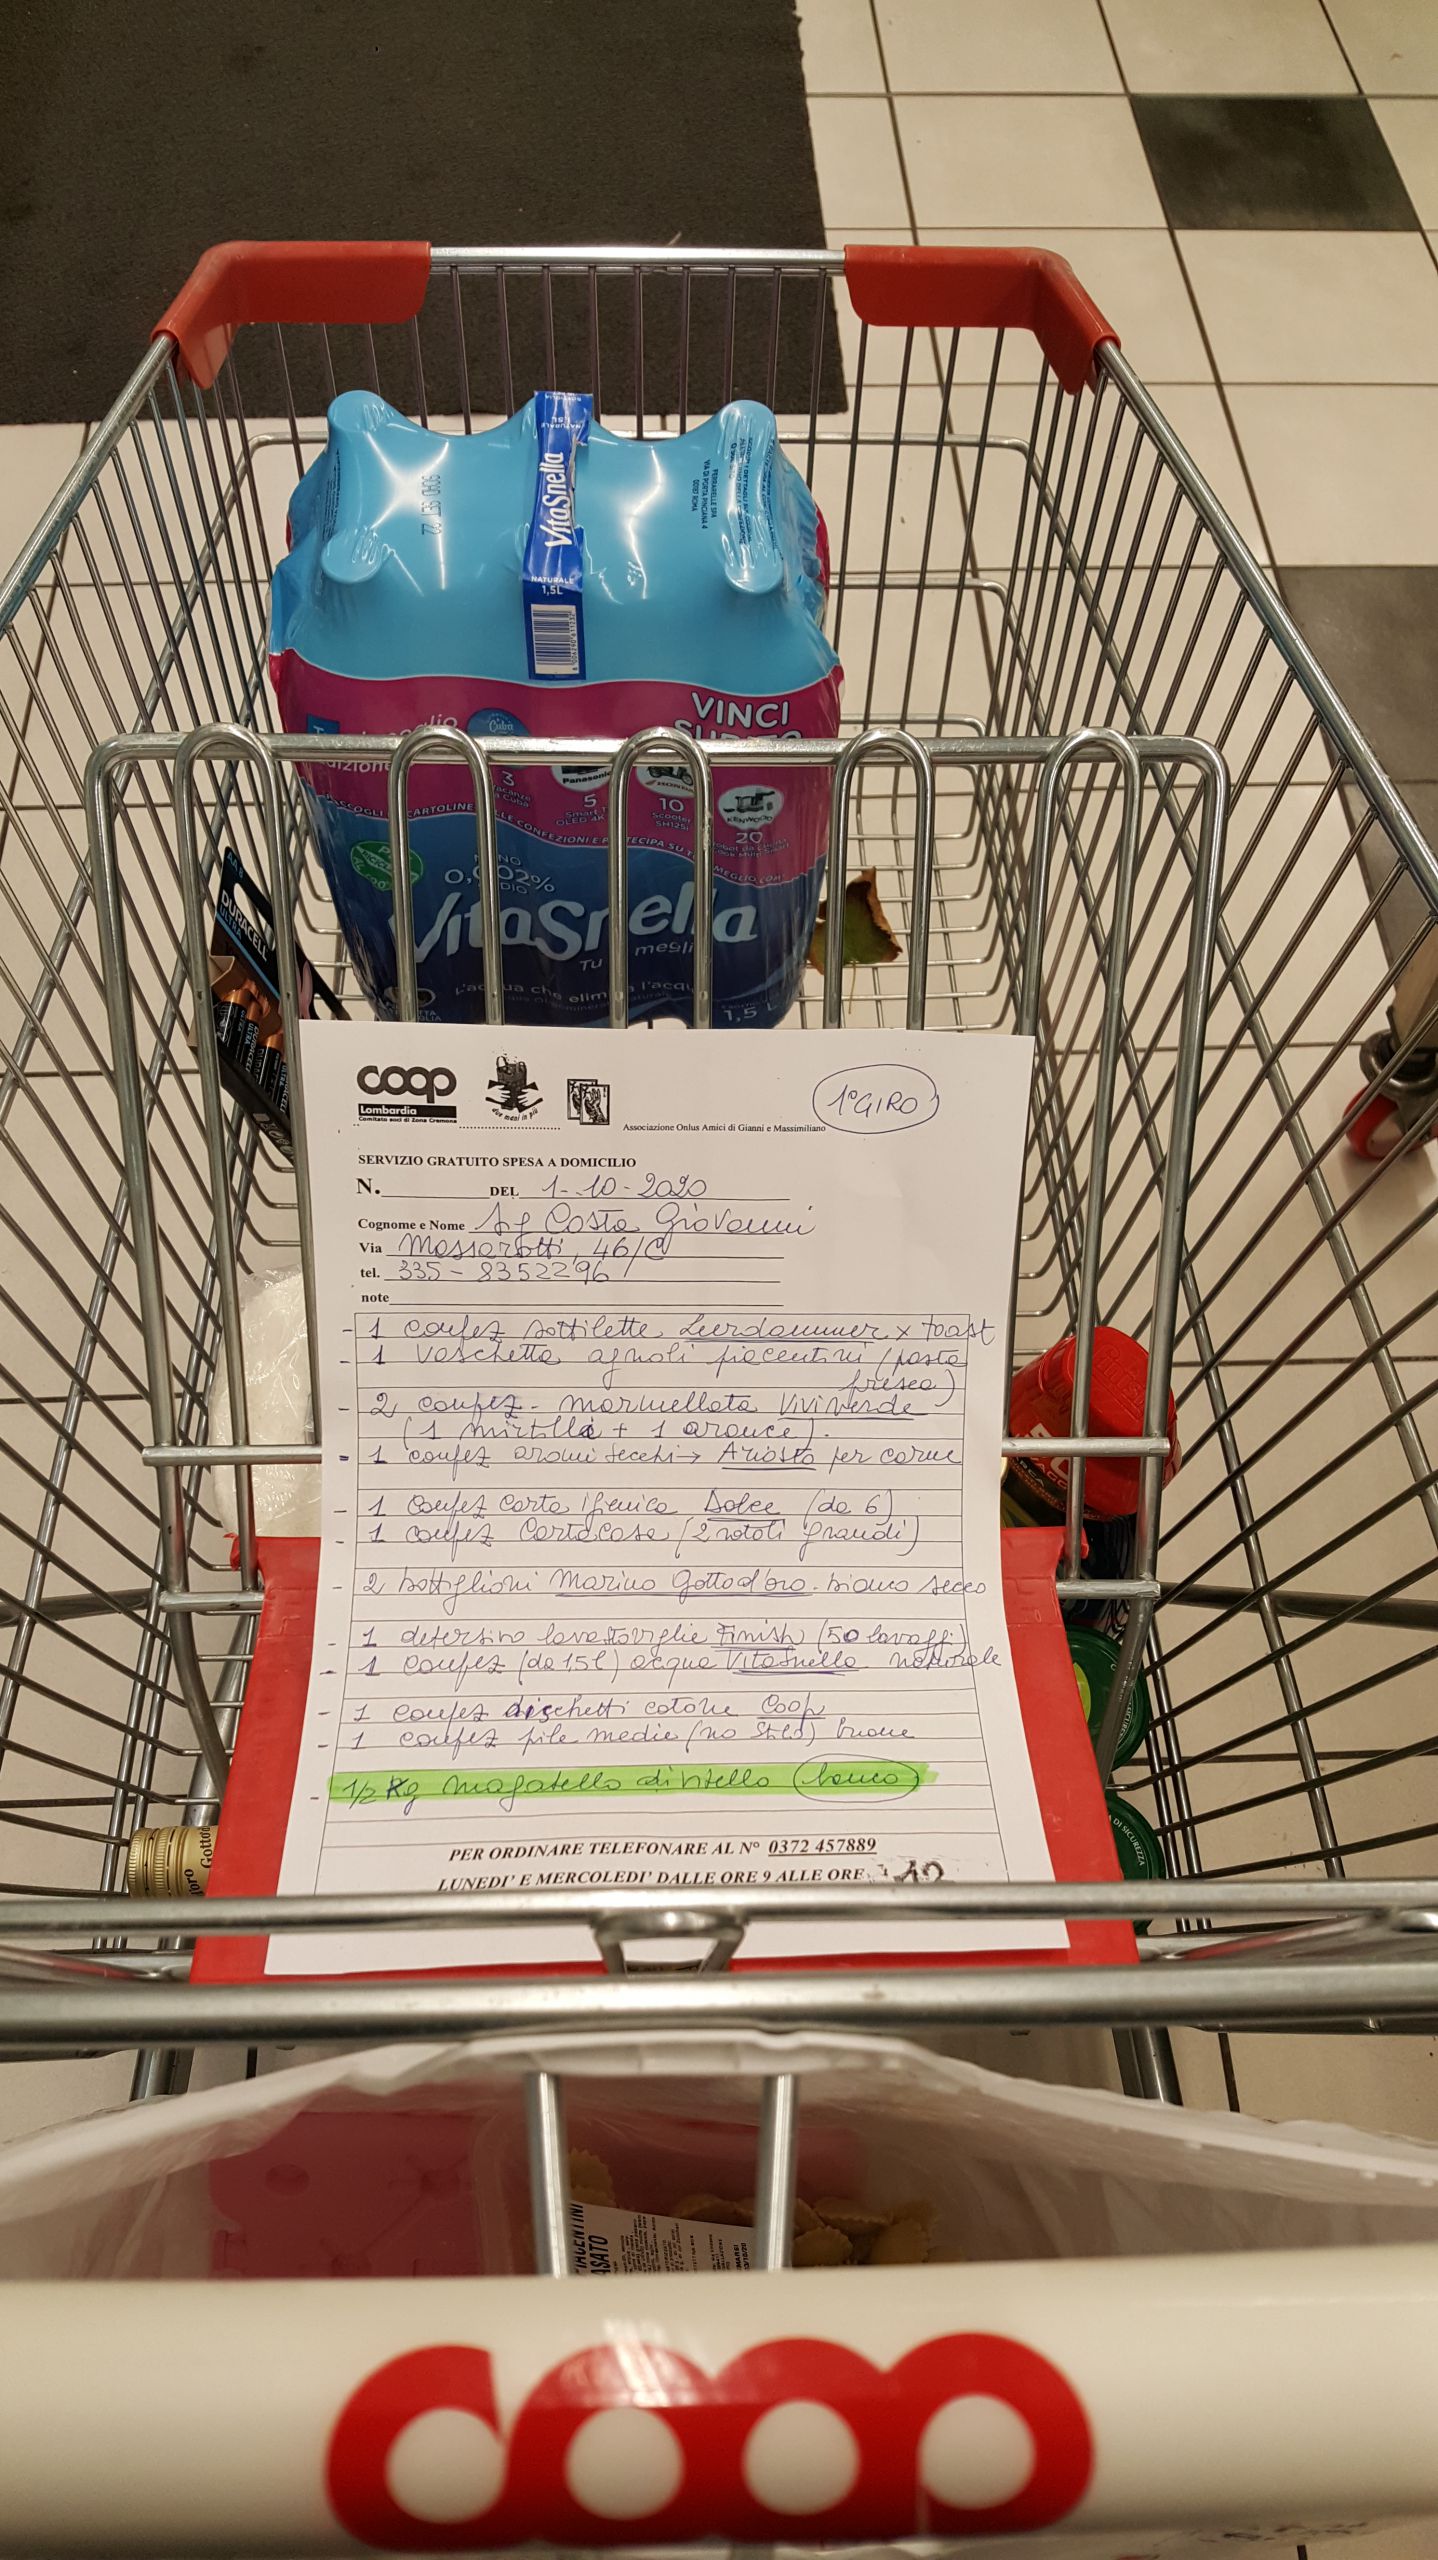 VitaSnella
NATURALE
1,5L
FERRARELLE SPA
VIA DI PORTA PINCIANA 4
00187 ROMA
VINCI
3
Panasonic
5
OLED 4K
HONDA
10
Scooter
SH125i
KENWOOD
20
0,002%
VitaSnella
Tu
1,5 L
DURACELL
ULTRA
coop
Lombardia
Comitato soci di Zona Cremona
due mani in più
Associazione Onlus Amici di Gianni e Massimiliano
1° GIRO
SERVIZIO GRATUITO SPESA A DOMICILIO
N. DEL 1-10-2020
Cognome e Nome Sig Costa Giovanni
Via Massarotti, 46/C
tel. 335-8352296
note
- 1 confez sottilette Leerdammer x toast
- 1 vaschetta agnoli piacentini (pasta
fresca)
- 2 confez - marmellata Viviverde
(1 mirtilli + 1 arance).
- 1 confez aromi secchi → Ariosto per carne
- 1 confez carta igenica Dolce (da 6)
- 1 confez Carta casa (2 rotoli grandi)
- 2 bottiglioni Marino Gotto d'oro. bianco secco
- 1 detersivo lavastoviglie Finish (50 lavaggi)
- 1 confez (da 1,5 l) acqua VitaSnella naturale
- 1 confez dischetti cotone Coop
- 1 confez pile medie (no stilo) buone
- 1/2 Kg magatello di vitello (banco)
PER ORDINARE TELEFONARE AL N° 0372 457889
LUNEDI' E MERCOLEDI' DALLE ORE 9 ALLE ORE 12
Gotto d'oro
DI SICUREZZA
coop